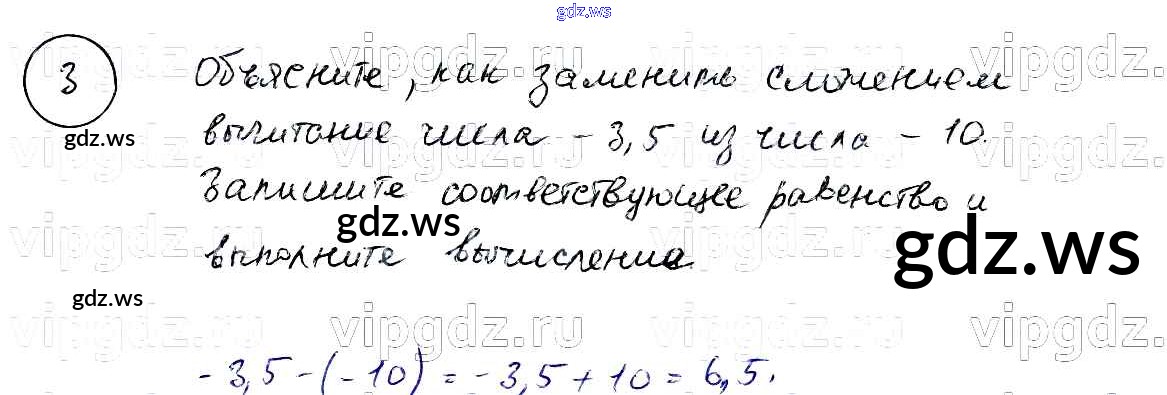 gdz.ws
3
Объясните, как заменить сложением
вычитание числа - 3,5 из числа - 10.
Запишите соответствующее равенство и
выполните вычисление
- 3,5 - (- 10) = - 3,5 + 10 = 6,5.
gdz.ws
gdz.ws
gdz.ws
gdz.ws
vipgdz.ru vipgdz.ru vipgdz.ru vipgdz.ru
vipgdz.ru vipgdz.ru vipgdz.ru vipgdz.ru
vipgdz.ru vipgdz.ru vipgdz.ru vipgdz.ru
vipgdz.ru vipgdz.ru vipgdz.ru vipgdz.ru